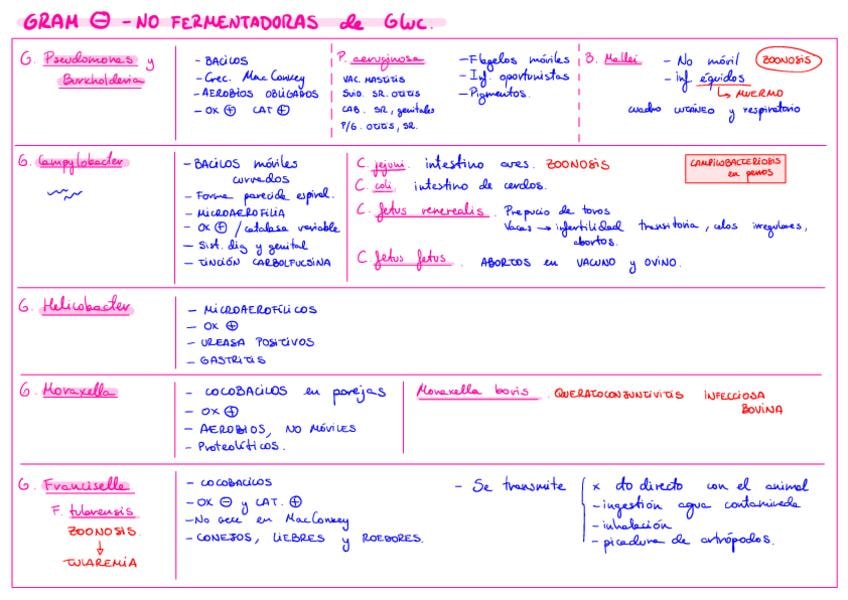 GRAM ⊖ - NO FERMENTADORAS de GLUC.
G. Pseudomonas y
Burkholderia
- BACILOS
- Crec. Mac Conkey
- AEROBIOS OBLIGADOS
- OX ⊕ CAT ⊕
P. aeruginosa
VAC. MASTITIS
SUID. SR. OTITIS
CAB. SR, genitales
P/G. OTITIS, SR.
- Flagelos móviles
- Inf. oportunistas
- Pigmentos.
B. Mallei
- No móvil
- inf équidos
↳ MUERMO
ZOONOSIS
cuadro cutáneo y respiratorio
G. Campylobacter
- BACILOS móviles
curvados
- Forma parecida espiral.
- MICROAEROFILIA
- OX ⊕ / catalasa variable
- Sist. dig y genital
- TINCIÓN CARBOLFUCSINA
C. jejuni. intestino aves. ZOONOSIS
C. coli intestino de cerdos.
C. fetus venerealis. Prepucio de toros
Vacas → infertilidad transitoria, celos irregulares,
abortos.
C. fetus fetus. ABORTOS en VACUNO y OVINO.
CAMPILOBACTERIOSIS
en perros
G. Helicobacter
- MICROAEROFÍLICOS
- OX ⊕
- UREASA POSITIVOS
- GASTRITIS
G. Moraxella
- COCOBACILOS en parejas
- OX ⊕
- AEROBIOS, NO MÓVILES
- Proteolíticos.
Moraxella bovis. QUERATOCONJUNTIVITIS INFECCIOSA
BOVINA
G. Francisella
F. tularensis
ZOONOSIS
↓
TULAREMIA
- COCOBACILOS
- OX ⊖ y CAT. ⊕
- No crece en MacConkey
- CONEJOS, LIEBRES y ROEDORES.
- Se transmite
x cto directo con el animal
- ingestión agua contaminada
- inhalación
- picadura de artrópodos.